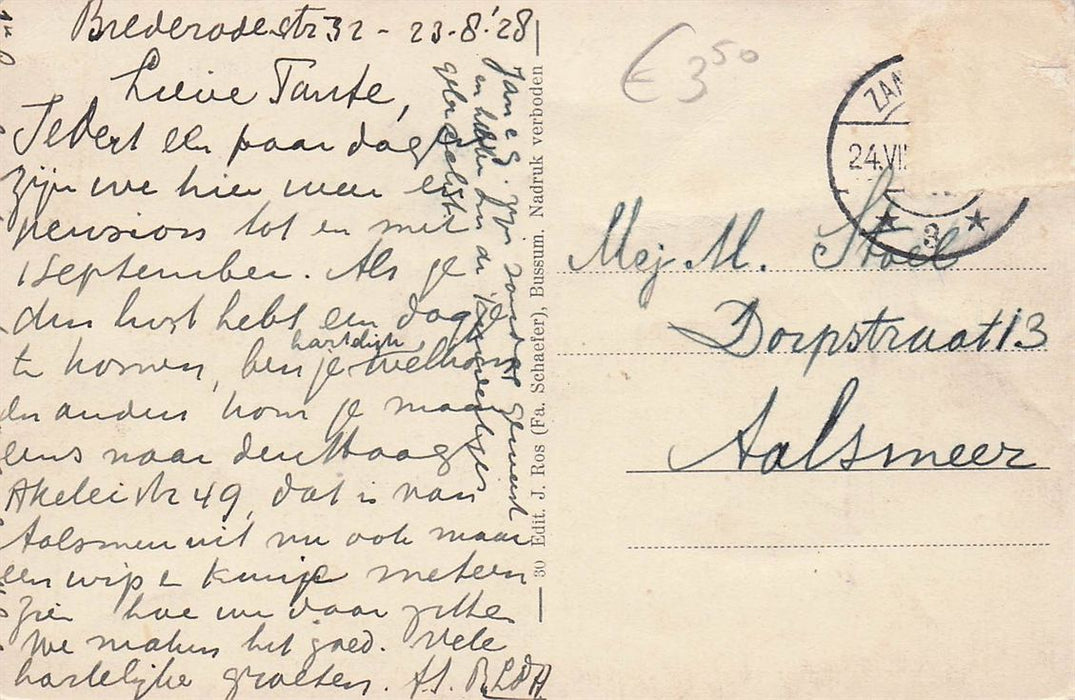 Brederodestr 32 - 23-8-'28
Lieve Tante,
Sedert een paar dag
zijn we hier weer en
pension tot en met
1 September. Als je
dus lust hebt een dagje
te komen, ben je hartelijk welkom
en anders kom je maar
eens naar den Haag
Akeleistr 49, dat is van
Aalsmeer uit nu ook maar
een wip en kun je meteen
zien hoe we daar zitten
We maken het goed. Vele
hartelijke groeten.
Jan e G. zondag geweest
en hebben
30 Edit. J. Ros (Fa. Schaefer), Bussum. Nadruk verboden
€ 3 50
ZAN
24.VII
3
Mej. M. Stoel
Dorpstraat 13
Aalsmeer